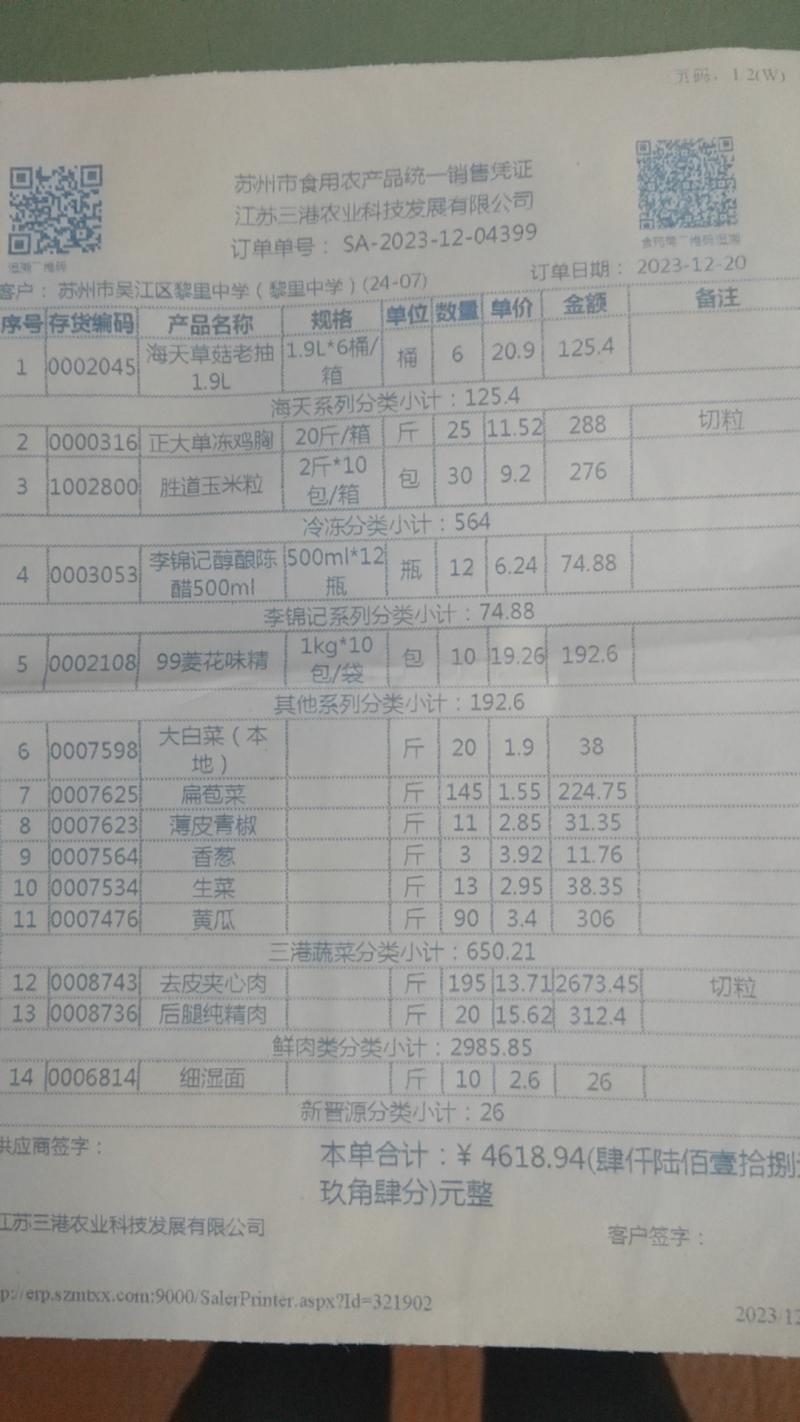 页码：1/2(W)
苏州市食用农产品统一销售凭证
江苏三港农业科技发展有限公司
订单单号： SA-2023-12-04399
订单日期： 2023-12-20
客户： 苏州市吴江区黎里中学（黎里中学）(24-07)
序号 存货编码 产品名称 规格 单位 数量 单价 金额 备注
1 0002045 海天草菇老抽1.9L 1.9L*6桶/箱 桶 6 20.9 125.4
海天系列分类小计：125.4
2 0000316 正大单冻鸡胸 20斤/箱 斤 25 11.52 288 切粒
3 1002800 胜道玉米粒 2斤*10包/箱 包 30 9.2 276
冷冻分类小计：564
4 0003053 李锦记醇酿陈醋500ml 500ml*12瓶 瓶 12 6.24 74.88
李锦记系列分类小计：74.88
5 0002108 99菱花味精 1kg*10包/袋 包 10 19.26 192.6
其他系列分类小计：192.6
6 0007598 大白菜（本地） 斤 20 1.9 38
7 0007625 扁苞菜 斤 145 1.55 224.75
8 0007623 薄皮青椒 斤 11 2.85 31.35
9 0007564 香葱 斤 3 3.92 11.76
10 0007534 生菜 斤 13 2.95 38.35
11 0007476 黄瓜 斤 90 3.4 306
三港蔬菜分类小计：650.21
12 0008743 去皮夹心肉 斤 195 13.71 2673.45 切粒
13 0008736 后腿纯精肉 斤 20 15.62 312.4
鲜肉类分类小计：2985.85
14 0006814 细湿面 斤 10 2.6 26
新晋源分类小计：26
供应商签字：
本单合计：¥ 4618.94(肆仟陆佰壹拾捌
玖角肆分)元整
江苏三港农业科技发展有限公司
客户签字：
p://erp.szmtxx.com:9000/SalerPrinter.aspx?Id=321902
2023/12